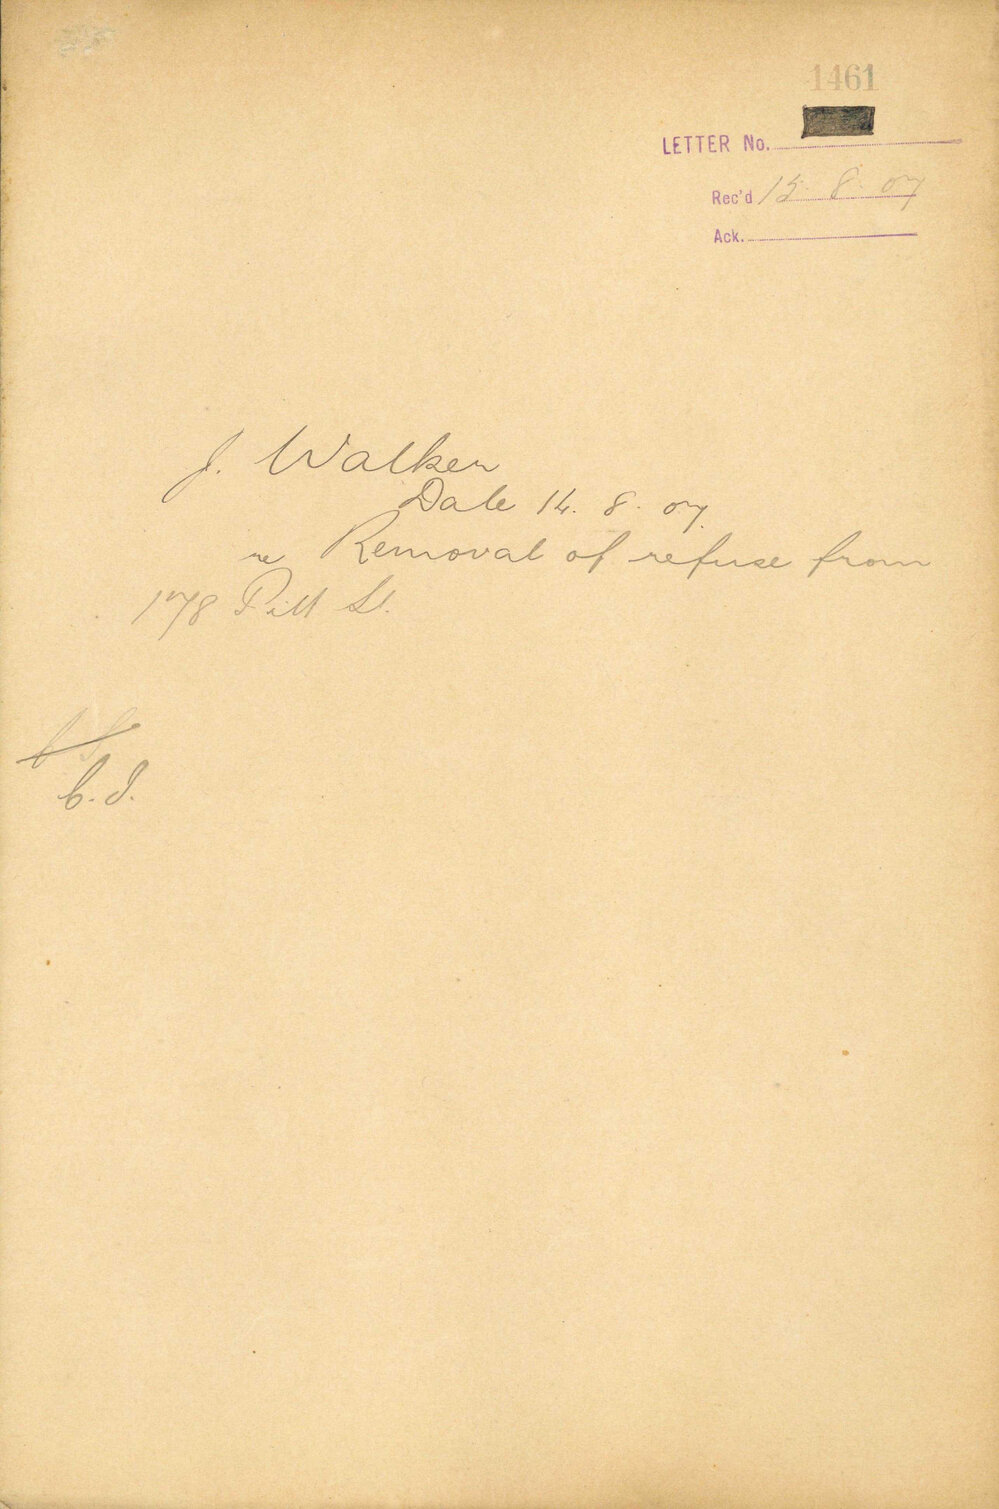 1461
LETTER No.
Rec'd 15. 8. 07
Ack.
J. Walker
Date 14. 8. 07.
re Removal of refuse from
178 Pitt St.
C. I.